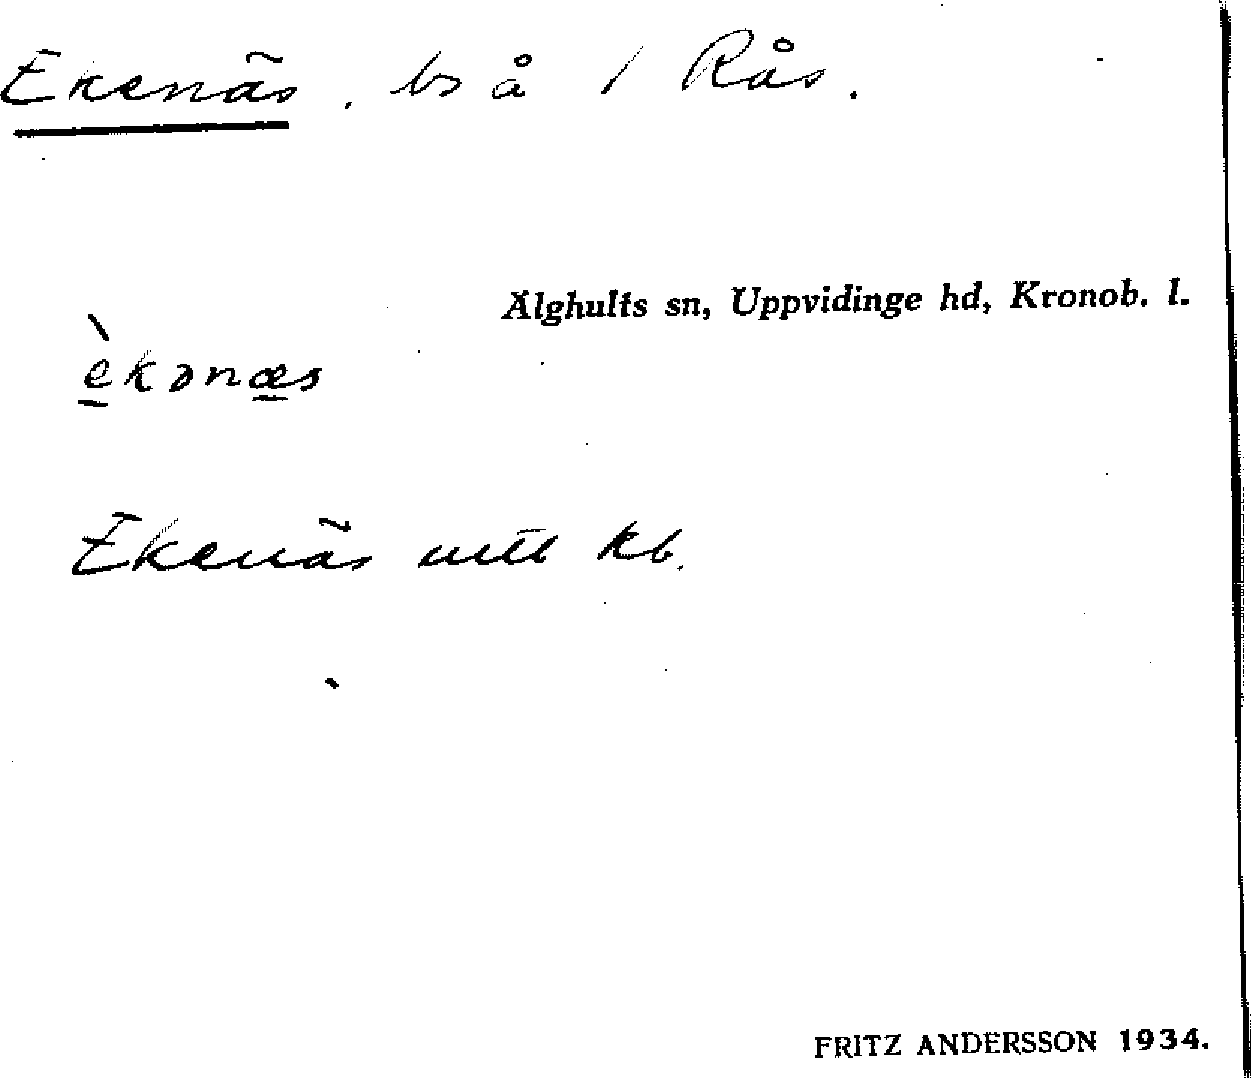 Ekenäs, bs å 1 Rås.
Älghults sn, Uppvidinge hd, Kronob. l.
èkənæs
Ekenäs utt kb.
FRITZ ANDERSSON 1934.